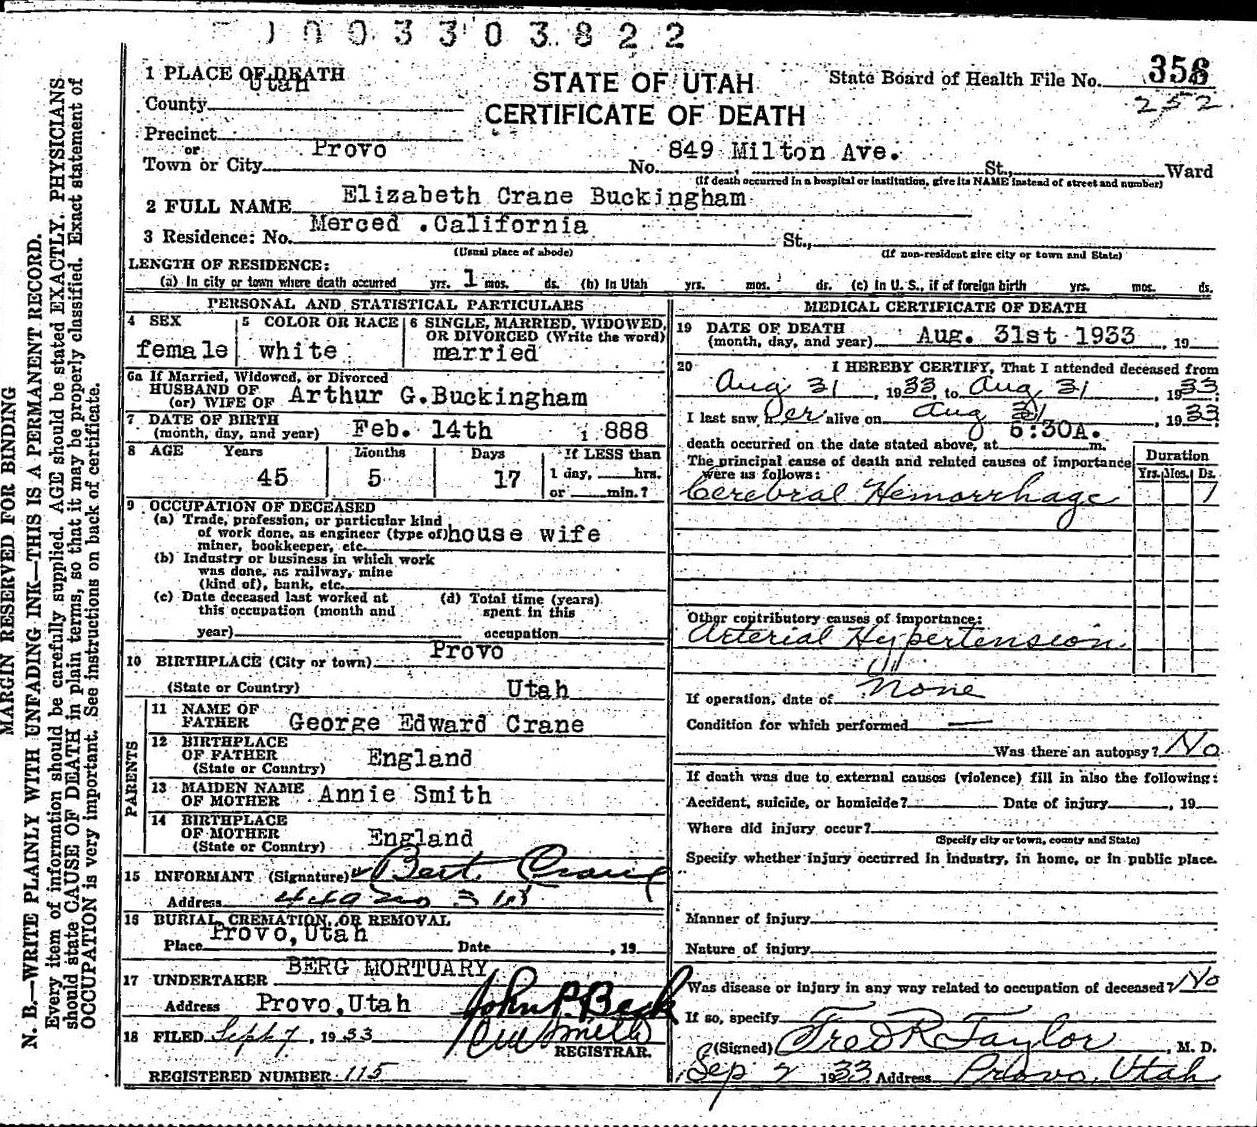 1003303822
1 PLACE OF DEATH
Utah
County
Precinct
or
Town or City Provo
STATE OF UTAH
CERTIFICATE OF DEATH
State Board of Health File No. 356
252
No. 849 Milton Ave. St., Ward
(If death occurred in a hospital or institution, give its NAME instead of street and number)
2 FULL NAME Elizabeth Crane Buckingham
3 Residence: No. Merced .California St.,
(Usual place of abode) (If non-resident give city or town and State)
LENGTH OF RESIDENCE:
(a) In city or town where death occurred yrs. 1 mos. ds. (b) In Utah yrs. mos. ds. (c) In U. S., if of foreign birth yrs. mos. ds.
PERSONAL AND STATISTICAL PARTICULARS
4 SEX
female
5 COLOR OR RACE
white
6 SINGLE, MARRIED, WIDOWED,
OR DIVORCED (Write the word)
married
6a If Married, Widowed, or Divorced
HUSBAND OF
(or) WIFE OF Arthur G.Buckingham
7 DATE OF BIRTH
(month, day, and year) Feb. 14th 1888
8 AGE Years Months Days If LESS than
45 5 17 1 day, hrs.
or min.?
9 OCCUPATION OF DECEASED
(a) Trade, profession, or particular kind
of work done, as engineer (type of) house wife
miner, bookkeeper, etc.
(b) Industry or business in which work
was done, as railway, mine
(kind of), bank, etc.
(c) Date deceased last worked at
this occupation (month and
year)
(d) Total time (years)
spent in this
occupation
10 BIRTHPLACE (City or town) Provo
(State or Country) Utah
PARENTS
11 NAME OF
FATHER George Edward Crane
12 BIRTHPLACE
OF FATHER England
(State or Country)
13 MAIDEN NAME
OF MOTHER Annie Smith
14 BIRTHPLACE
OF MOTHER England
(State or Country)
15 INFORMANT (Signature) Bert. Crane
Address
16 BURIAL, CREMATION, OR REMOVAL
Place Provo,Utah Date , 19
17 UNDERTAKER BERG MORTUARY
Address Provo,Utah
John P. Beck
18 FILED Sept 7, 1933
REGISTRAR.
REGISTERED NUMBER 115
MEDICAL CERTIFICATE OF DEATH
19 DATE OF DEATH
(month, day, and year) Aug. 31st 1933 , 19
20 I HEREBY CERTIFY, That I attended deceased from
Aug 31, 1933, to Aug 31, 1933
I last saw her alive on Aug 31, 1933
death occurred on the date stated above, at 6:30A. m.
The principal cause of death and related causes of importance
were as follows:
Duration
Yrs. Mos. Ds.
Cerebral Hemorrhage 1
Other contributory causes of importance:
Arterial Hypertension
If operation, date of None
Condition for which performed —
Was there an autopsy? No
If death was due to external causes (violence) fill in also the following:
Accident, suicide, or homicide? Date of injury , 19
Where did injury occur?
(Specify city or town, county and State)
Specify whether injury occurred in industry, in home, or in public place.
Manner of injury
Nature of injury
Was disease or injury in any way related to occupation of deceased? No
If so, specify
(Signed) Fred R Taylor, M. D.
Sep 2 1933 Address Provo, Utah
MARGIN RESERVED FOR BINDING
N. B.—WRITE PLAINLY WITH UNFADING INK—THIS IS A PERMANENT RECORD.
Every item of information should be carefully supplied. AGE should be stated EXACTLY. PHYSICIANS
should state CAUSE OF DEATH in plain terms, so that it may be properly classified. Exact statement of
OCCUPATION is very important. See instructions on back of certificate.